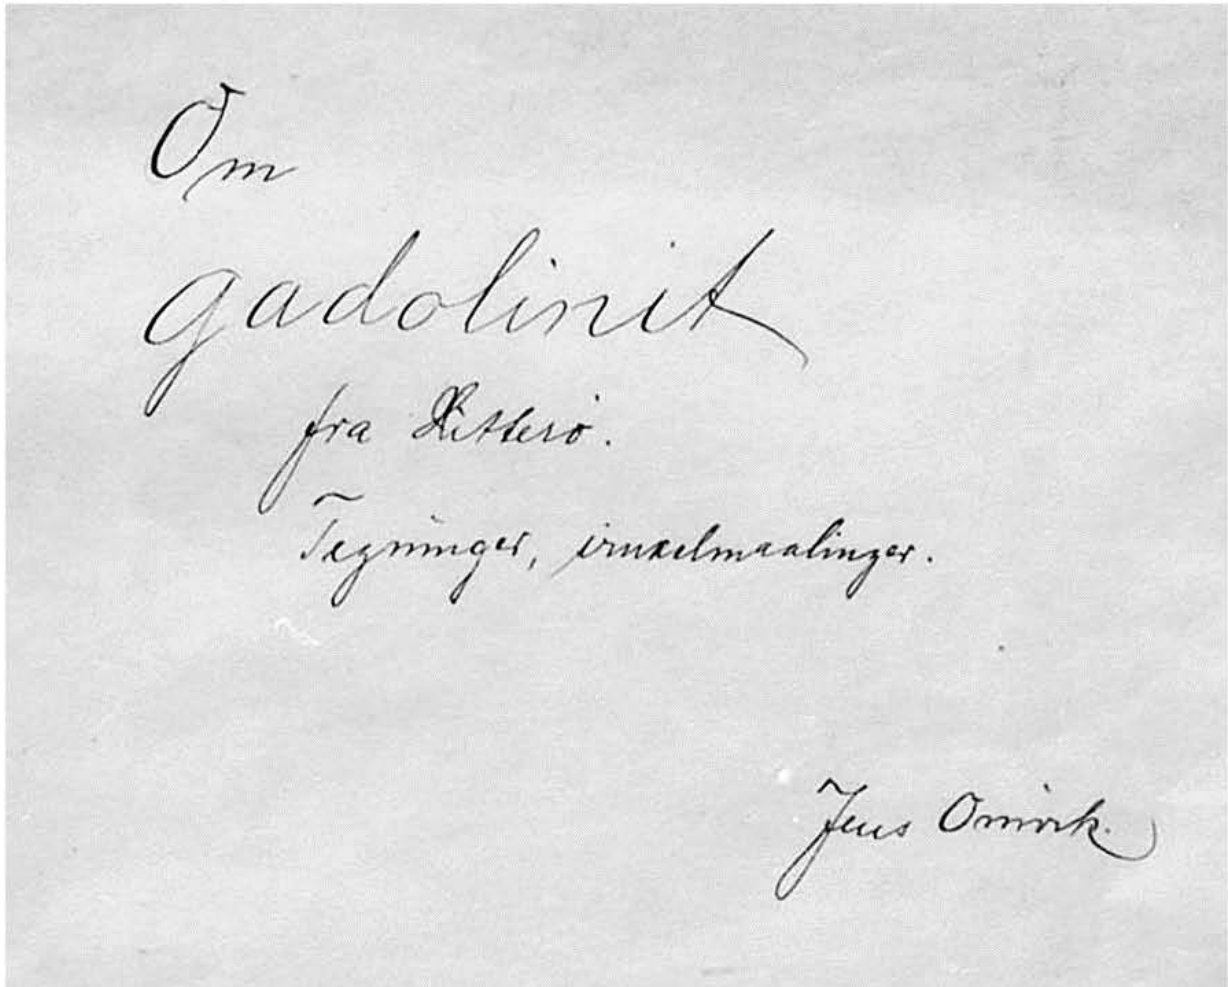 Om
gadolinit
fra Hitterö.
Tegninger, vinkelmaalinger.
Jens